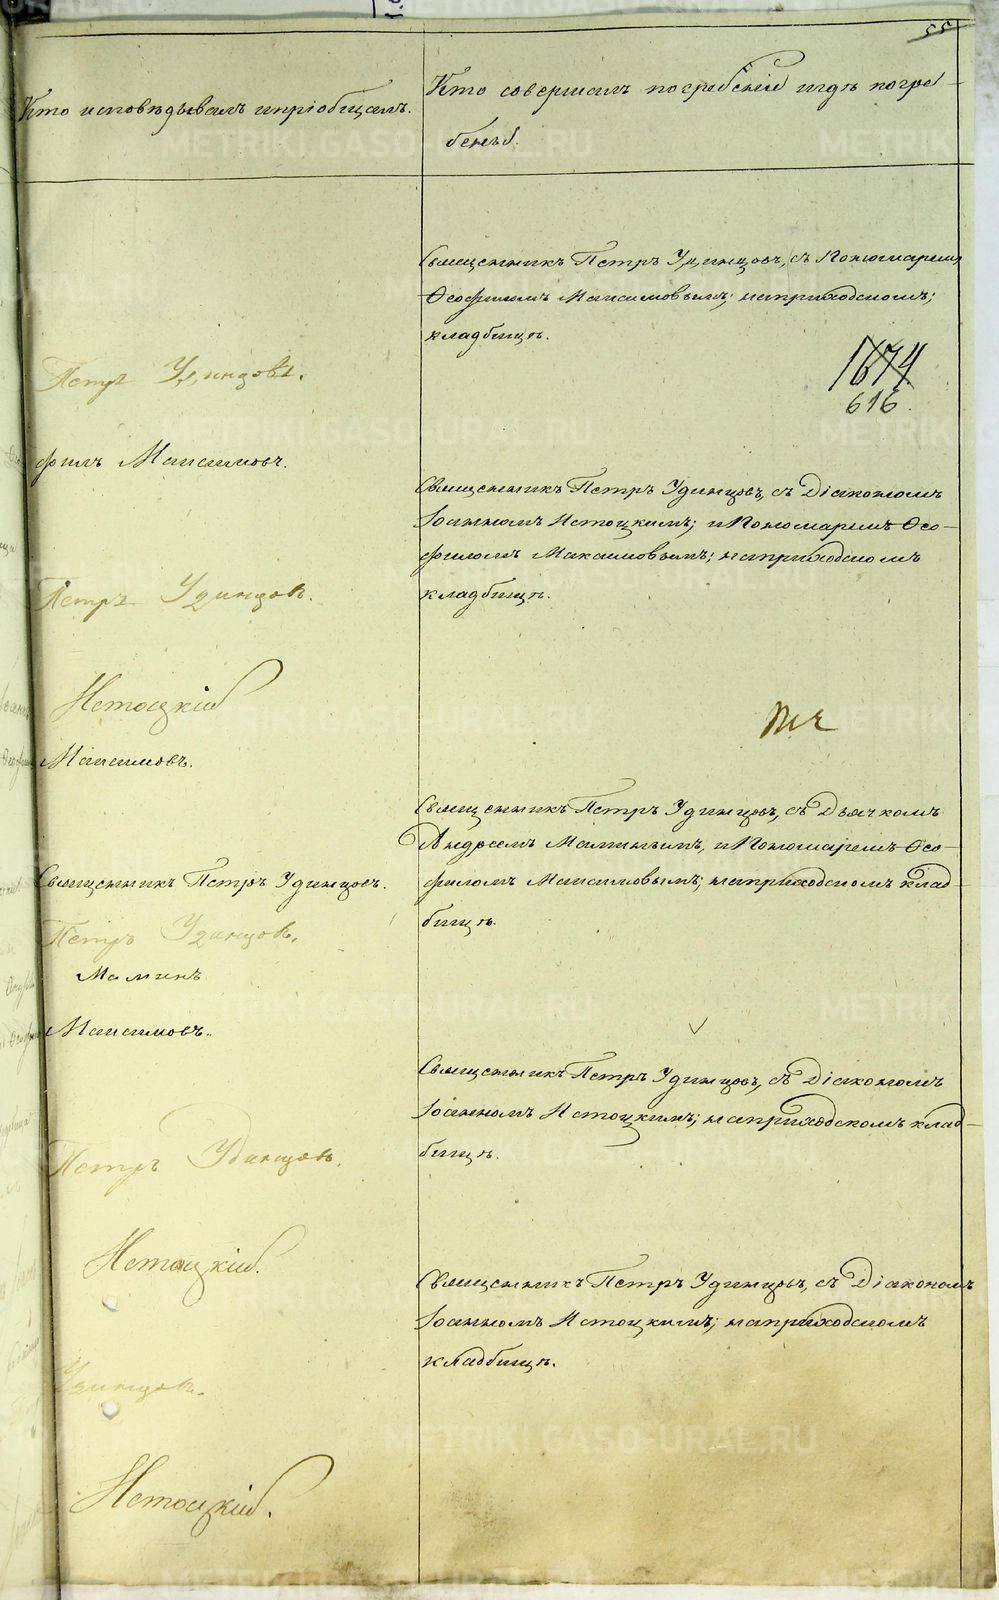 55
Кто исповѣдывалъ и пріобщалъ.
Кто совершалъ погребеніе и гдѣ погре-
бены.
Священникъ Петръ Удинцовъ, съ Пономаремъ
Ѳеофиломъ Максимовымъ; на приходскомъ;
кладбищѣ.
1674
616.
Петръ Удинцовъ.
филъ Максимовъ.
Священникъ Петръ Удинцовъ, съ Діакономъ
Іоанномъ Истоцкимъ; и Пономаремъ Ѳео-
филомъ Максимовымъ; на приходскомъ
кладбищѣ.
Петръ Удинцовъ.
Истоцкій
Максимовъ.
Священникъ Петръ Удинцовъ, съ Дьячкомъ
Андреемъ Маминымъ, и Пономаремъ Ѳео-
филомъ Максимовымъ; на приходскомъ клад-
бищѣ.
Священникъ Петръ Удинцовъ.
Петръ Удинцовъ.
Маминъ
Максимовъ.
Священникъ Петръ Удинцовъ, съ Діакономъ
Іоанномъ Истоцкимъ; на приходскомъ клад-
бищѣ.
Петръ Удинцовъ.
Истоцкій.
Священникъ Петръ Удинцовъ, съ Діакономъ
Іоанномъ Истоцкимъ; на приходскомъ
кладбищѣ.
Удинцовъ.
Истоцкій.
METRIKI.GASO-URAL.RU